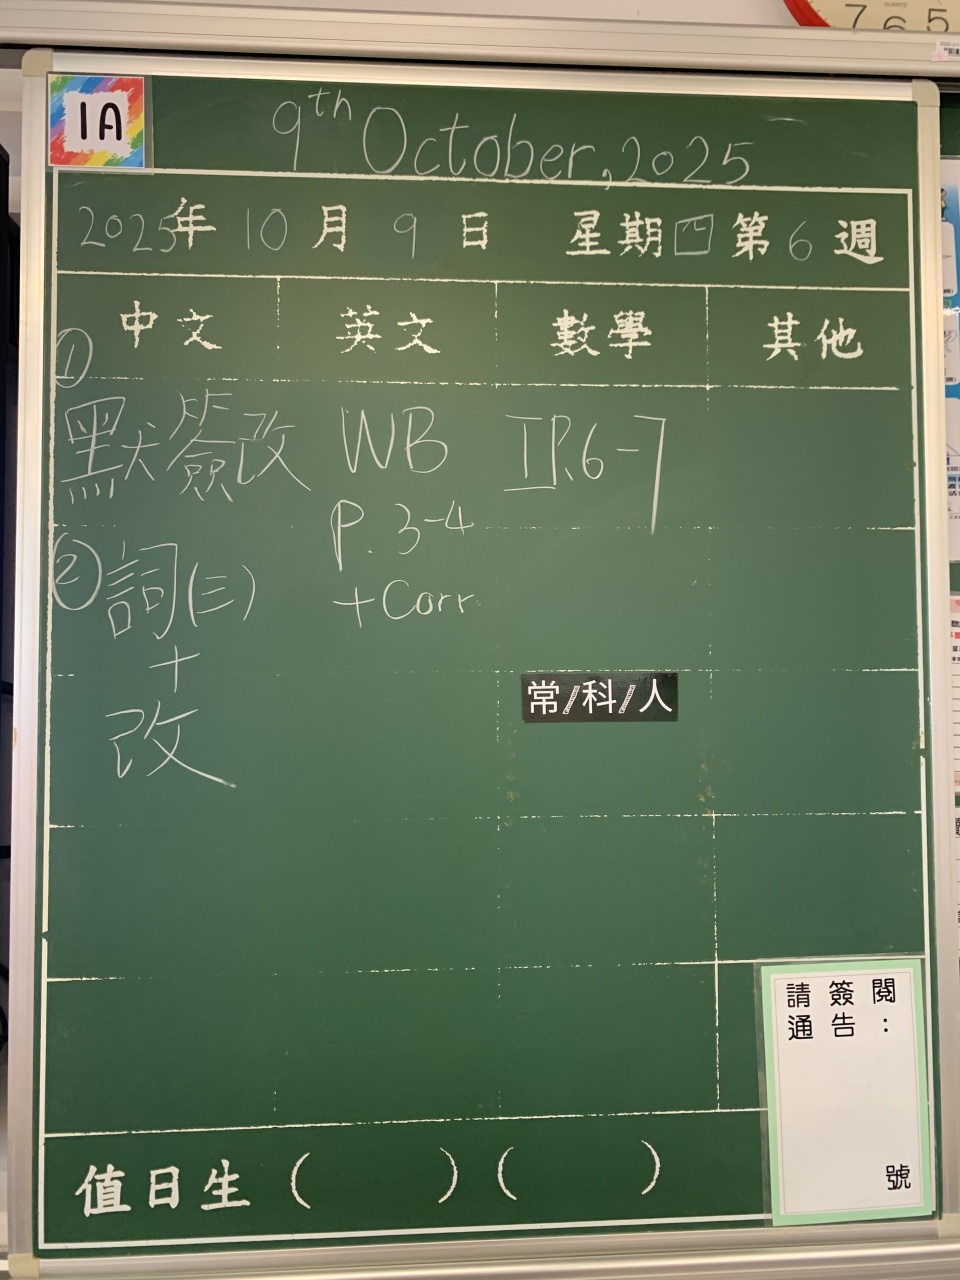 7 6 5
QUARTZ
1A
9th October, 2025
2025年 10 月 9 日 星期四 第 6 週
中文 英文 數學 其他
①
默簽改
WB
P. 3-4
+Corr
IP.6-7
②
詞(三)
+
改
常/科/人
請簽閱
通告:
號
值日生 ( ) ( )